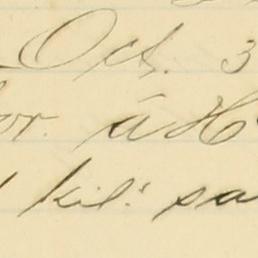 Oct. 3
or. à H
kil: sa